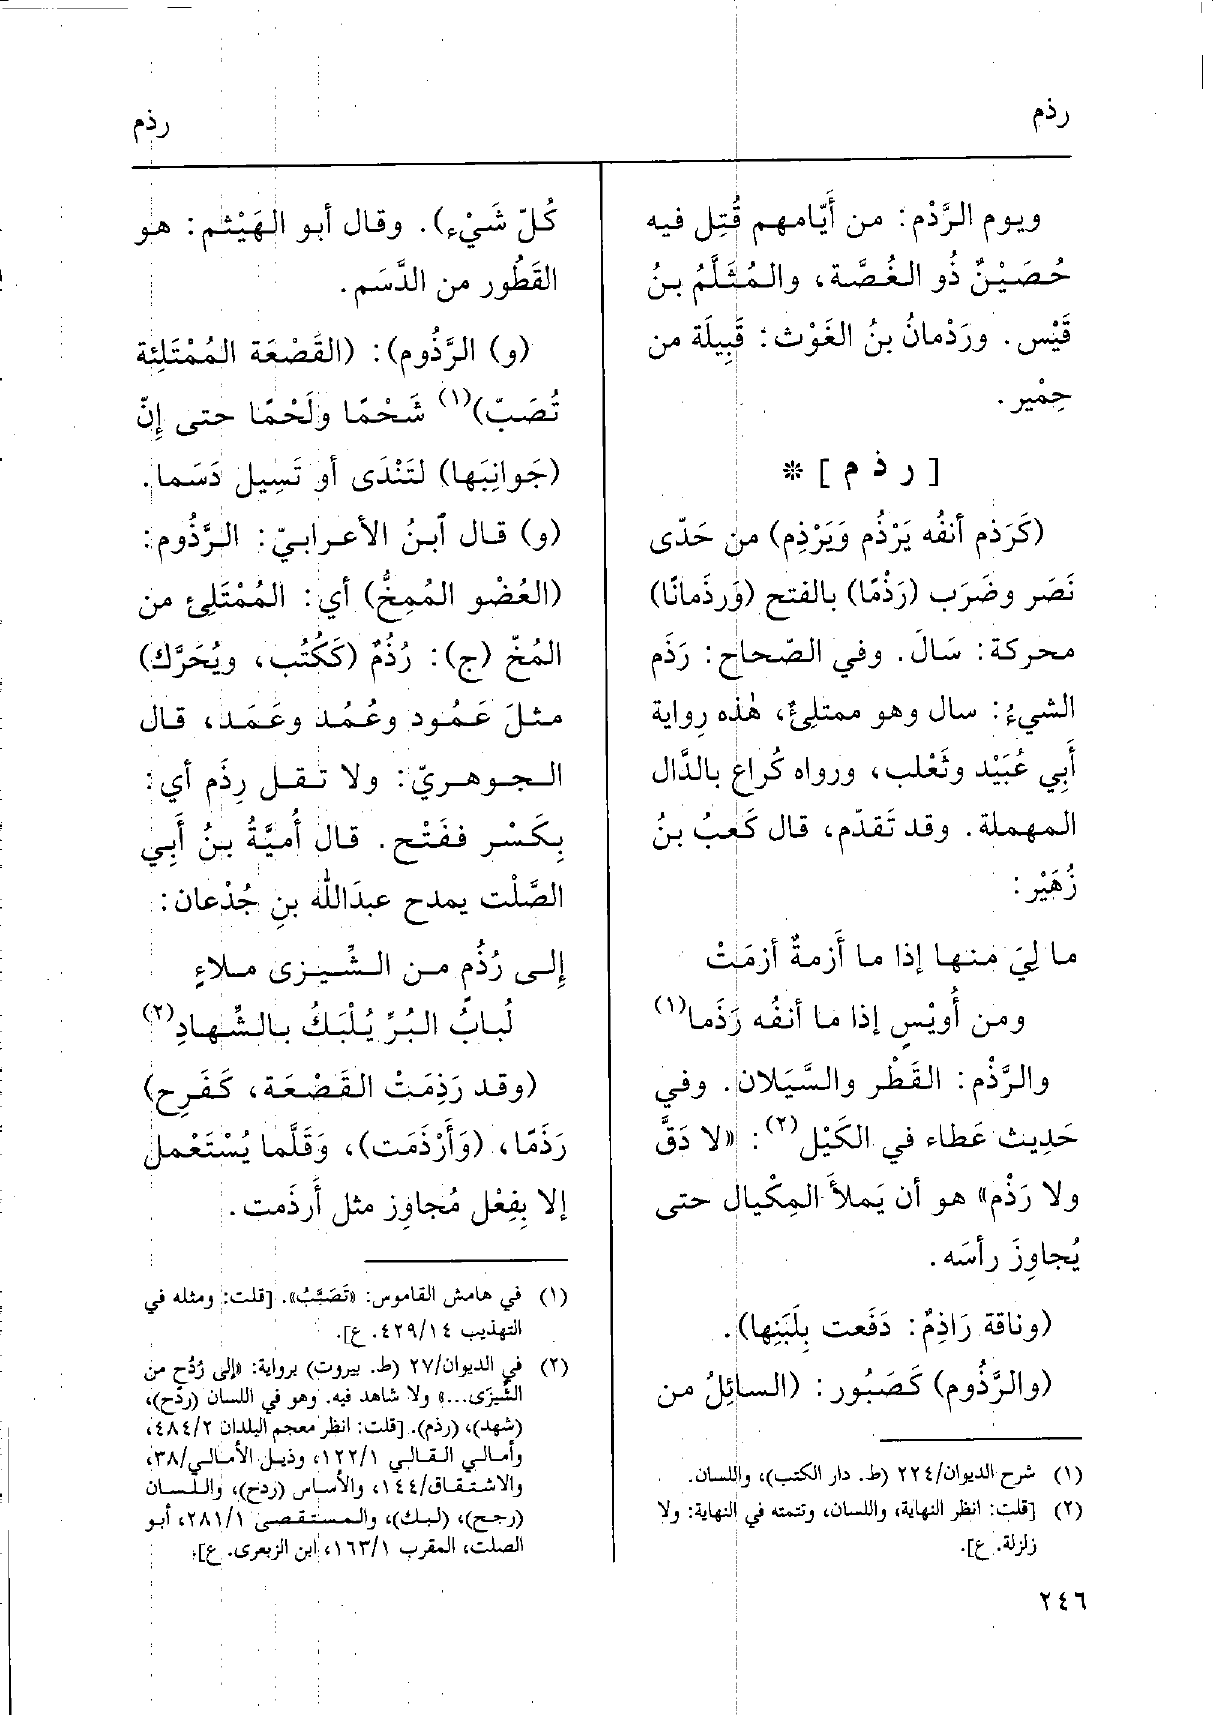 رذم
رذم
ويوم الرَّذْم: من أَيّامهم قُتِل فيه
حُصَيْنٌ ذُو الغُصَّة، والمُثَلَّمُ بنُ
قَيْس. ورَدْمانُ بنُ الغَوْث: قَبِيلَة من
حِمْير.
[ ر ذ م ] *
(كَرَذم أنفُه يَرْذُم وَيَرْذِم) من حَدّى
نَصَر وضَرَب (رَذْمًا) بالفتح (وَرذَمانًا)
محركة: سَالَ. وفي الصّحاح: رَذَم
الشيءُ: سال وهو ممتلِئٌ، هٰذه رِواية
أَبِي عُبَيْد وثَعْلب، ورواه كُراع بالدَّال
المهملة. وقد تَقدّم، قال كَعبُ بنُ
زُهَيْر:
ما لِيَ منها إذا ما أَزمةٌ أزمَتْ
ومن أُويْسٍ إذا ما أنفُه رَذَما(١)
والرَّذْم: القَطْر والسَّيَلان. وفي
حَدِيث عَطاء في الكَيْل(٢): «لا دَقَّ
ولا رَذْم» هو أن يَملأَ المِكْيال حتى
يُجاوِزَ رأسَه.
(وناقة رَاذِمٌ: دَفَعت بِلَبَنِها).
(والرَّذُوم) كَصَبُور: (السائِلُ من
(١) شرح الديوان/٢٢٤ (ط. دار الكتب)، واللسان.
(٢) [قلت: انظر النهاية، واللسان، وتتمته في النهاية: ولا
زلزلة. ع].
٢٤٦
كُلّ شَيْء). وقال أبو الهَيْثم: هو
القَطُور من الدَّسَم.
(و) الرَّذُوم): (القَصْعَة المُمْتَلِئة
تُصَبّ)(١) شَحْمًا ولَحْمًا حتى إنّ
(جَوانِبَها) لتَنْدَى أو تَسِيل دَسَما.
(و) قال ابنُ الأعرابيّ: الرَّذُوم:
(العُضْو المُمِخُّ) أي: المُمْتَلِئ من
المُخّ (ج): رُذُمٌ (كَكُتُب، ويُحَرَّك)
مثلَ عَمُود وعُمُد وعَمَد، قال
الجوهريّ: ولا تقل رِذَم أي:
بِكَسْر ففَتْح. قال أُميَّةُ بنُ أَبِي
الصَّلْت يمدح عبدَالله بنِ جُدْعان:
إلى رُذُم من الشِّيزى ملاءٍ
لُبابُ البُرِّ يُلْبَكُ بالشِّهادِ(٢)
(وقد رَذِمَتْ القَصْعَة، كَفَرِح)
رَذَمًا، (وَأَرْذَمَت)، وَقَلَّما يُسْتَعْمل
إلا بِفِعْل مُجاوِز مثل أَرذَمت.
(١) في هامش القاموس: «تَصَبَّبُ». [قلت: ومثله في
التهذيب ٤٢٩/١٤. ع].
(٢) في الديوان/٢٧ (ط. بيروت) برواية: «إلى رُدُح من
الشِّيزَى...» ولا شاهد فيه. وهو في اللسان (ردح)،
(شهد)، (رذم). [قلت: انظر معجم البلدان ٤٨٤/٢،
وأمالي القالي ١٢٢/١، وذيل الأمالي/٣٨،
والاشتقاق/١٤٤، والأساس (ردح)، واللسان
(رجح)، (لبك)، والمستقصى ٢٨١/١، أبو
الصلت، المقرب ١٦٣/١، ابن الزبعرى. ع].